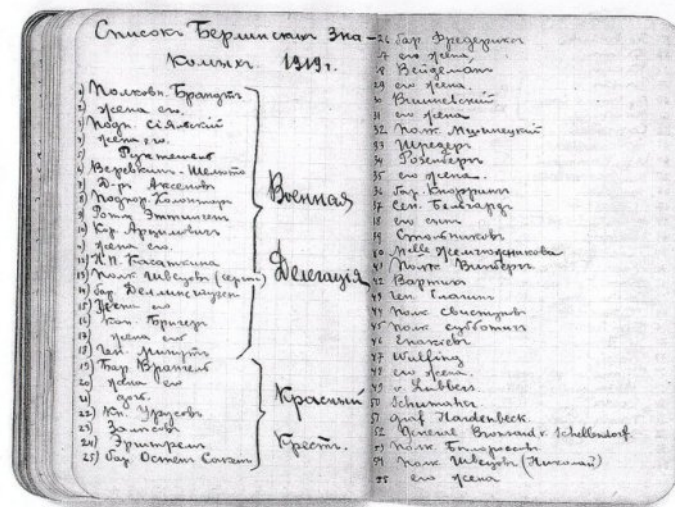 Списокъ Берлинскихъ Зна-
комыхъ. 1919г.
1) Полковн. Брандтъ
2) жена его.
3) Подп. Сіяльскій
4) жена его.
5)
6) Веревкинъ-Шелюто
7) Д-ръ Аксеновъ
8) Подпор. Колонтаръ
9) Ротм. Эттингенъ
10) Кор. Арцимовичъ
11) жена его.
12) Н.П. Касаткина
13) Полк. Швецовъ (Сергѣй)
14) бар. Деллинсгаузен
15) Жена его
16) Кап. Бригеръ
17) жена его
18) Ген. Минутъ
Военная
Делегація
19) Бар Врангель
20) жена его
21) дочь.
22) Кн. Урусовъ
23)
24)
25) бар Остенъ Сакенъ
Красный
Крестъ.
26 бар. Фредериксъ
27 его жена,
28 Вейдеманъ
29 его жена.
30 Вишневскій
31 его жена
32 полк
33 Шредеръ
34 Розенбергъ
35 его жена.
36 бар. Кноррингъ
37 Сен. Бельгардъ
38 его сынъ
39 Стольниковъ
40 M-elle Жемчужникова
41 Полк Винбергъ
42
43 Ген.
44 полк Свистуновъ
45 полк Субботинъ
46
47 Wulfing
48 его жена.
49 v. Lubbers.
50 Schumaher
51 graf Hardenbeck.
52 General Bronsard v. Schellendorf.
53 полк.
54 полк Швецовъ (Николай)
55 его жена